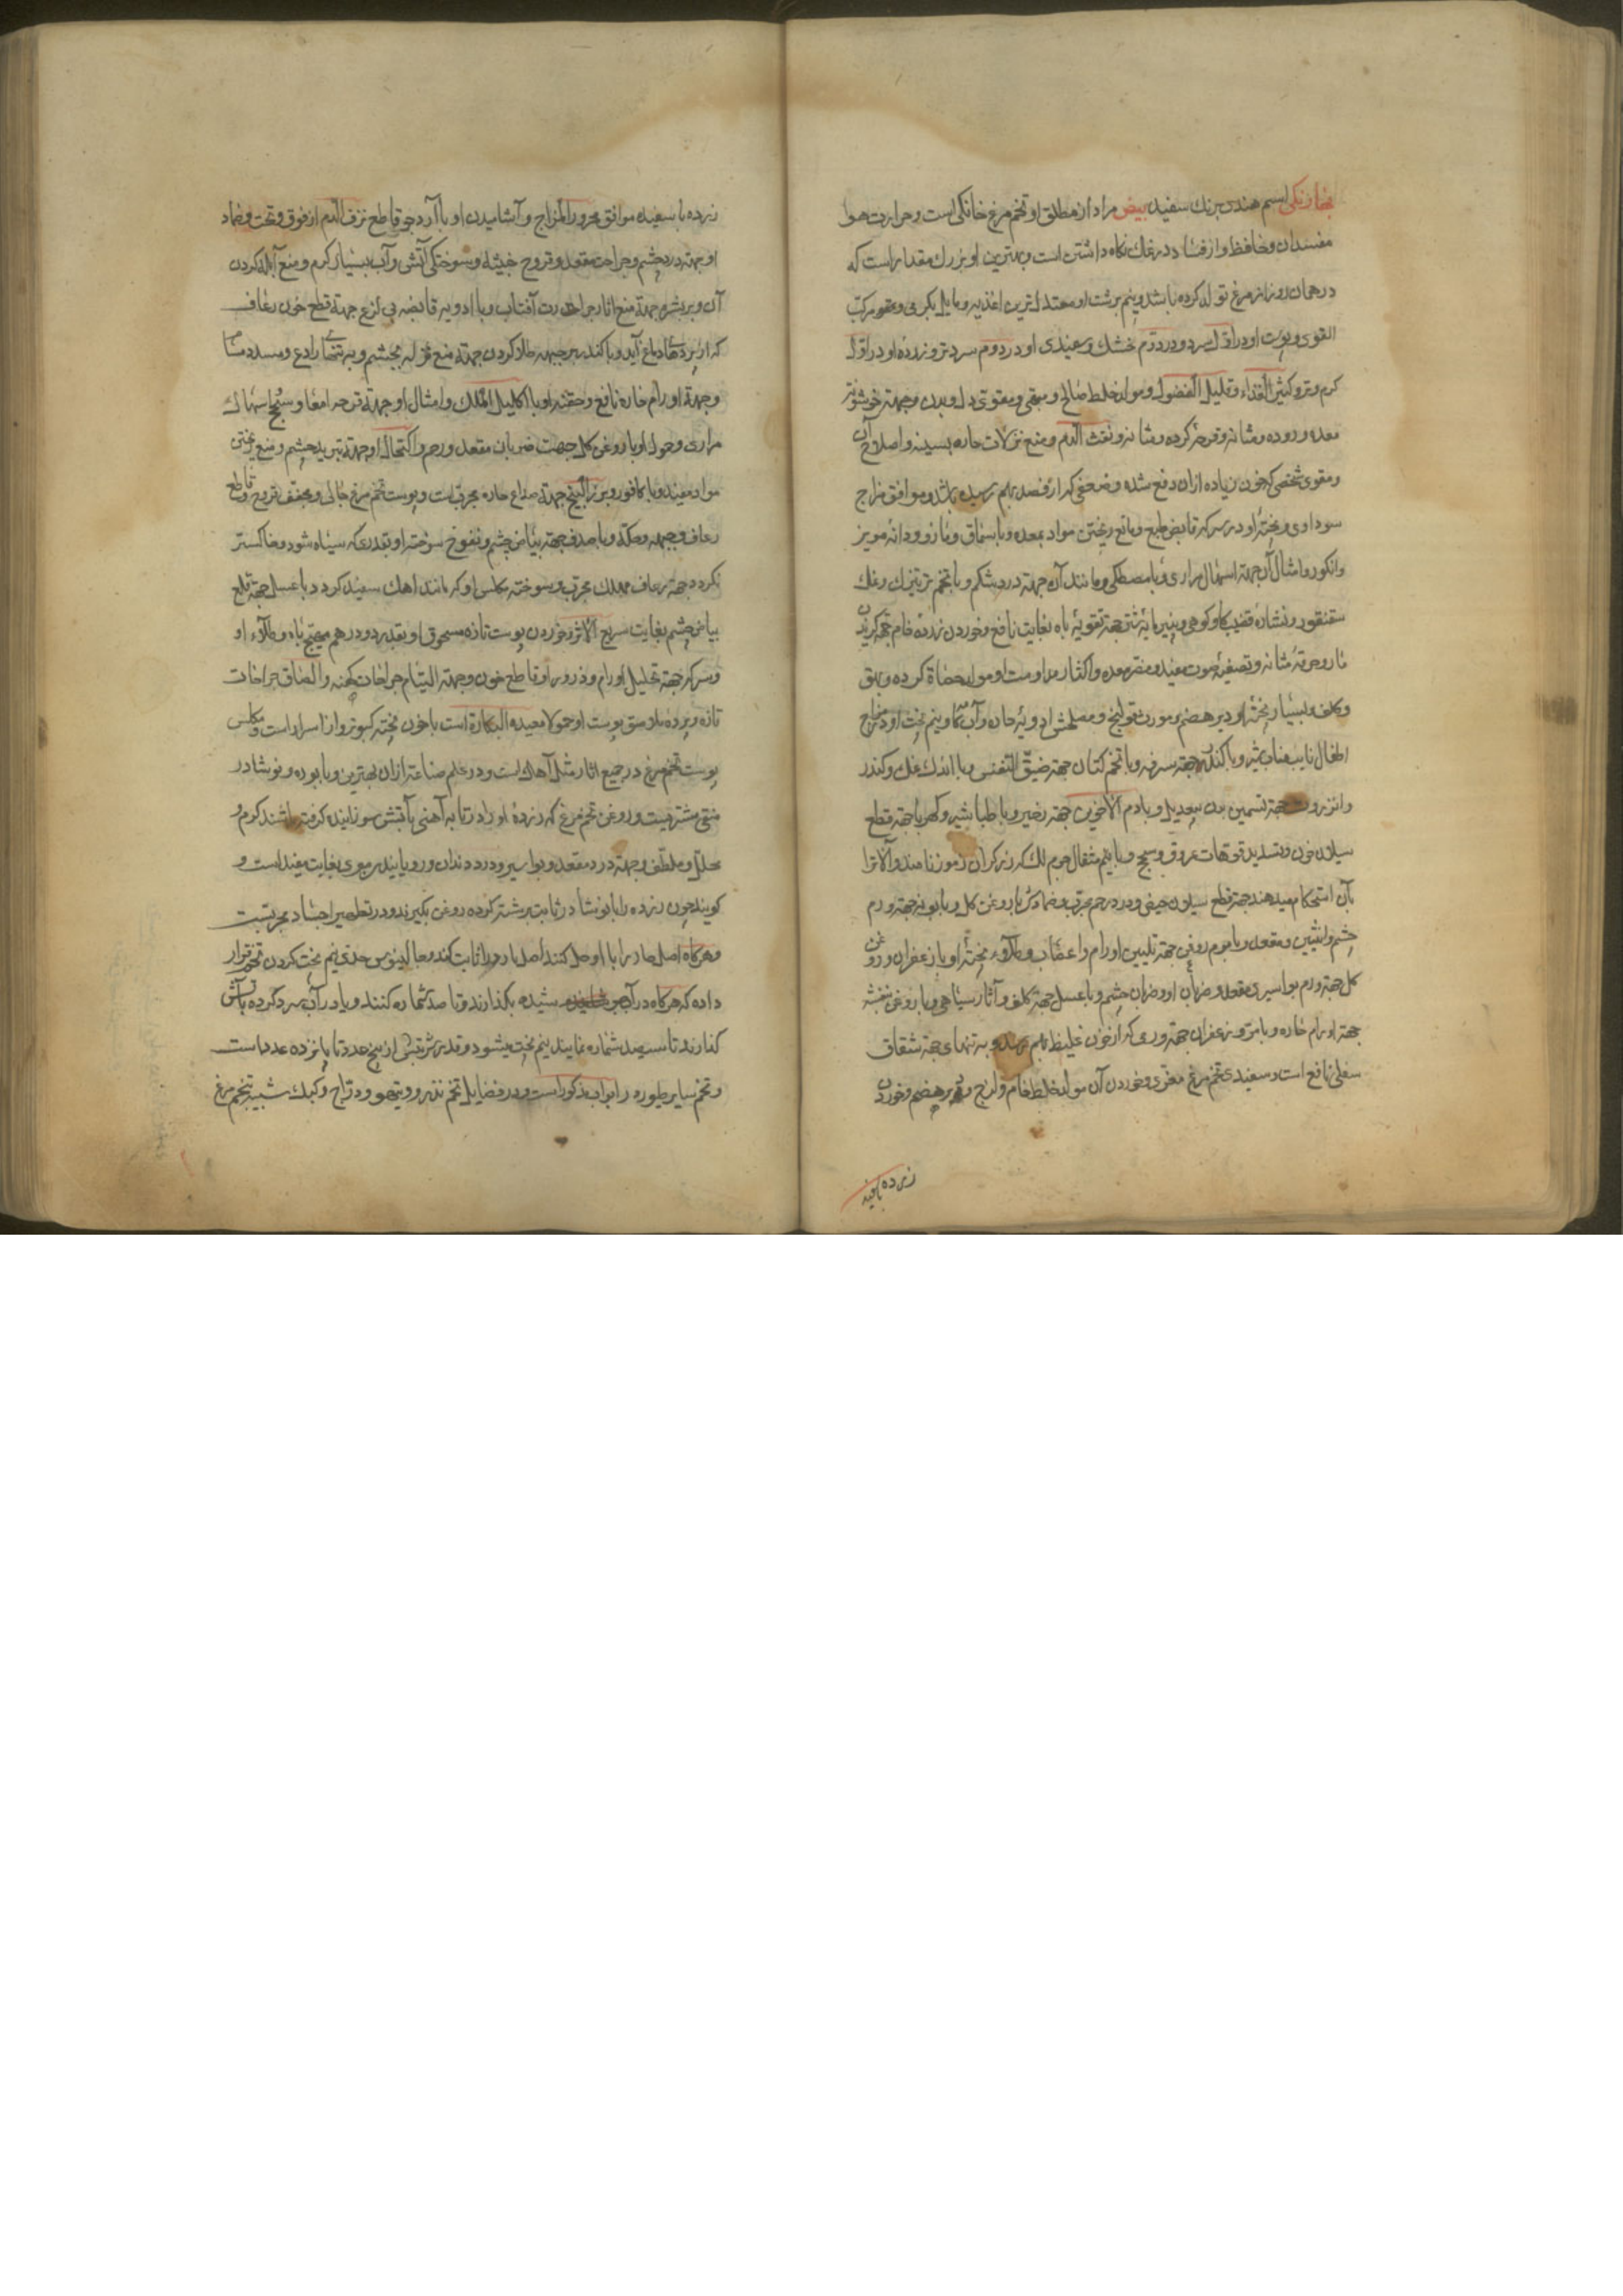 بهارنکی اسم هندی برنك سفید بیض مراد از مطلق او تخم مرغ خانکی است و حرارت هوا
مفسد آن و حافظ او از فساد در نمك نکاه داشتن است و بهترین او بزرك مقدار است که
در همان روز از مرغ تولد کرده باشد و نیم برشت او معتدل ترین اغذیه و مایل بکرمی و مرکب
القوی و پوست او در اول سرد و در دوم خشك و سفیدی او در دوم سرد و تر و زرده او در اول
کرم و تر و کثیر الغذاء و قلیل الفضول و مولد خلط صالح و مبهی و مقوی دل و بدن و جهة خشونة
معده و روده و مثانه و قرحه کرده و مثانه و نفث الدم و منع نزلات حاره بسینه و اصلاح آن
و مقوی شخصی که خون زیاده از ان دفع شده و ضعفی که از فصد بهم رسیده باشد و موافق مزاج
سوداوی و پخته او در سرکه قابض طبع و مانع ریختن مواد بمعده و با سماق و مازو و دانه مویز
و انکور و امثال آن جهة اسهال مراری و با مصطکی و مانند آن جهة درد شکم و با تخم تره تیزك و نمك
سقنقور و نشاره قضیب کاو کوهی و پنیر مایه شتر جهة تقویة باه بغایت نافع و خوردن زرده خام جهة کزیدن
مار و حرقة مثانه و تصفیة صوت مفید و مضر معده و اکثار و مداومت او مولد حصاة کرده و بهق
و کلف و بسیار پخته او دیر هضم و مورث قولنج و مصلحش ادویه حاره و آب کامه و نیم پخت او در مزاج
اطفال نایب مناب شیر و با کندر جهة سرفه و با تخم کتان جهة ضیق النفس و با اندك نمك و کندر
و انزروت جهة تسمین بدن بیعدیل و با دم الاخوین جهة زحیر و با طباشیر و کهربا جهة قطع
سیلان خون و تسدید فوهات عروق و سحج و با نیم مثقال جرم لك که زرکران رموز نامند و آلات را
بآن استحکام میدهند جهة قطع سیلان حیض و درد رحم مجرب و ضمادش با روغن کل و بابونه جهة ورم
چشم و انثیین و مقعد و با موم روغن جهة تلیین اورام و اعصاب و طلاء پخته او با زعفران و روغن
کل جهة ورم بواسیری مقعد و ضربان او و ضربان چشم و با عسل جهة کلف و آثار سیاهی و با روغن بنفشه
جهة اورام حاره و با مر و زعفران جهة ورمی که از خون غلیظ بهم رسد و به تنهائی جهة شقاق
سفلی نافع است و سفیدی تخم مرغ مغری و خوردن آن مولد خلط خام و لزج و دیر هضم و خوردن
زرده با سفیده
زرده با سفیده موافق محرور المزاج و آشامیدن او با آرد جو قاطع نزف الدم از فوق و تحت و ضماد
او جهة درد چشم و جراحت مقعد و قروح خبیثه و سوختکی آتش و آب بسیار کرم و منع آبله کردن
آن و بر بشره جهة منع اثار حرارت آفتاب و با ادویه قابضه بی لزع جهة قطع خون رعاف
که از پردهای دماغ آید و با کندر بر جبهه طلا کردن جهة منع نزله بچشم و به تنهائی رادع و مسدد مسام
و جهة اورام حاره نافع و حقنه او با اکلیل الملك و امثال او جهة قرحه امعا و سحج اسهال
مراری و حمول او با روغن کل جهت ضربان مقعد و رحم و اکتحال او جهة تبرید چشم و منع ریختن
مواد مفید و با کافور و بزر البنج جهة صداع حاره مجرب است و پوست تخم مرغ جالی و مجفف قروح و قاطع
رعاف و جهة حکه و با صدف جهة بیاض چشم و نفوخ سوخته او بقدری که سیاه شود و خاکستر
نکردد جهة رعاف مهلك مجرب و سوخته مکلس او که مانند اهك سفید کردد با عسل جهة قلع
بیاض چشم بغایت سریع الاثر و خوردن پوست تازه مسحوق او بقدر دو درهم مهیج باه و طلاء او
و سرکه جهة تحلیل اورام و ذرور او قاطع خون و جهة التیام جراحات کهنه و الصاق جراحات
تازه و پرده ملاصق پوست او حمولا معیده البکارة است با خون پخته کبوتر و از اسرار است و مکلس
پوست تخم مرغ در جمیع اثار مثل آهك است و در علم صناعة از ان بهترین و با بوره و نوشادر
منقی مشتریست و روغن تخم مرغ که زرده او را در تابه آهنی بآتش سوزانیده کرفته باشند کرم و
محلل و ملطف و جهة درد مقعد و بواسیر و درد دندان و رویانیدن موی بغایت مفید است و
کویند چون زرده را با نوشادر ثابت برشته کرده روغن بکیرند و در تطهیر اجساد مجربست
و هرکاه اصل حار را با او حل کنند اصل بارد را ثابت کند و جالینوس حدی نیم پخت کردن تخم مرغ قرار
داده که هرکاه در آب جوشیده بکذارند و تا صد شماره کنند و یا در آب سرد کرده بآتش
کذارند تا سیصد شماره نمایند نیم پخت میشود و قدر شربتش از پنج عدد تا پانزده عدد است
و تخم سایر طیور در ابواب مذکور است و در فضایل تخم تذرو و تیهو و دراج و کبك شبیه بتخم مرغ